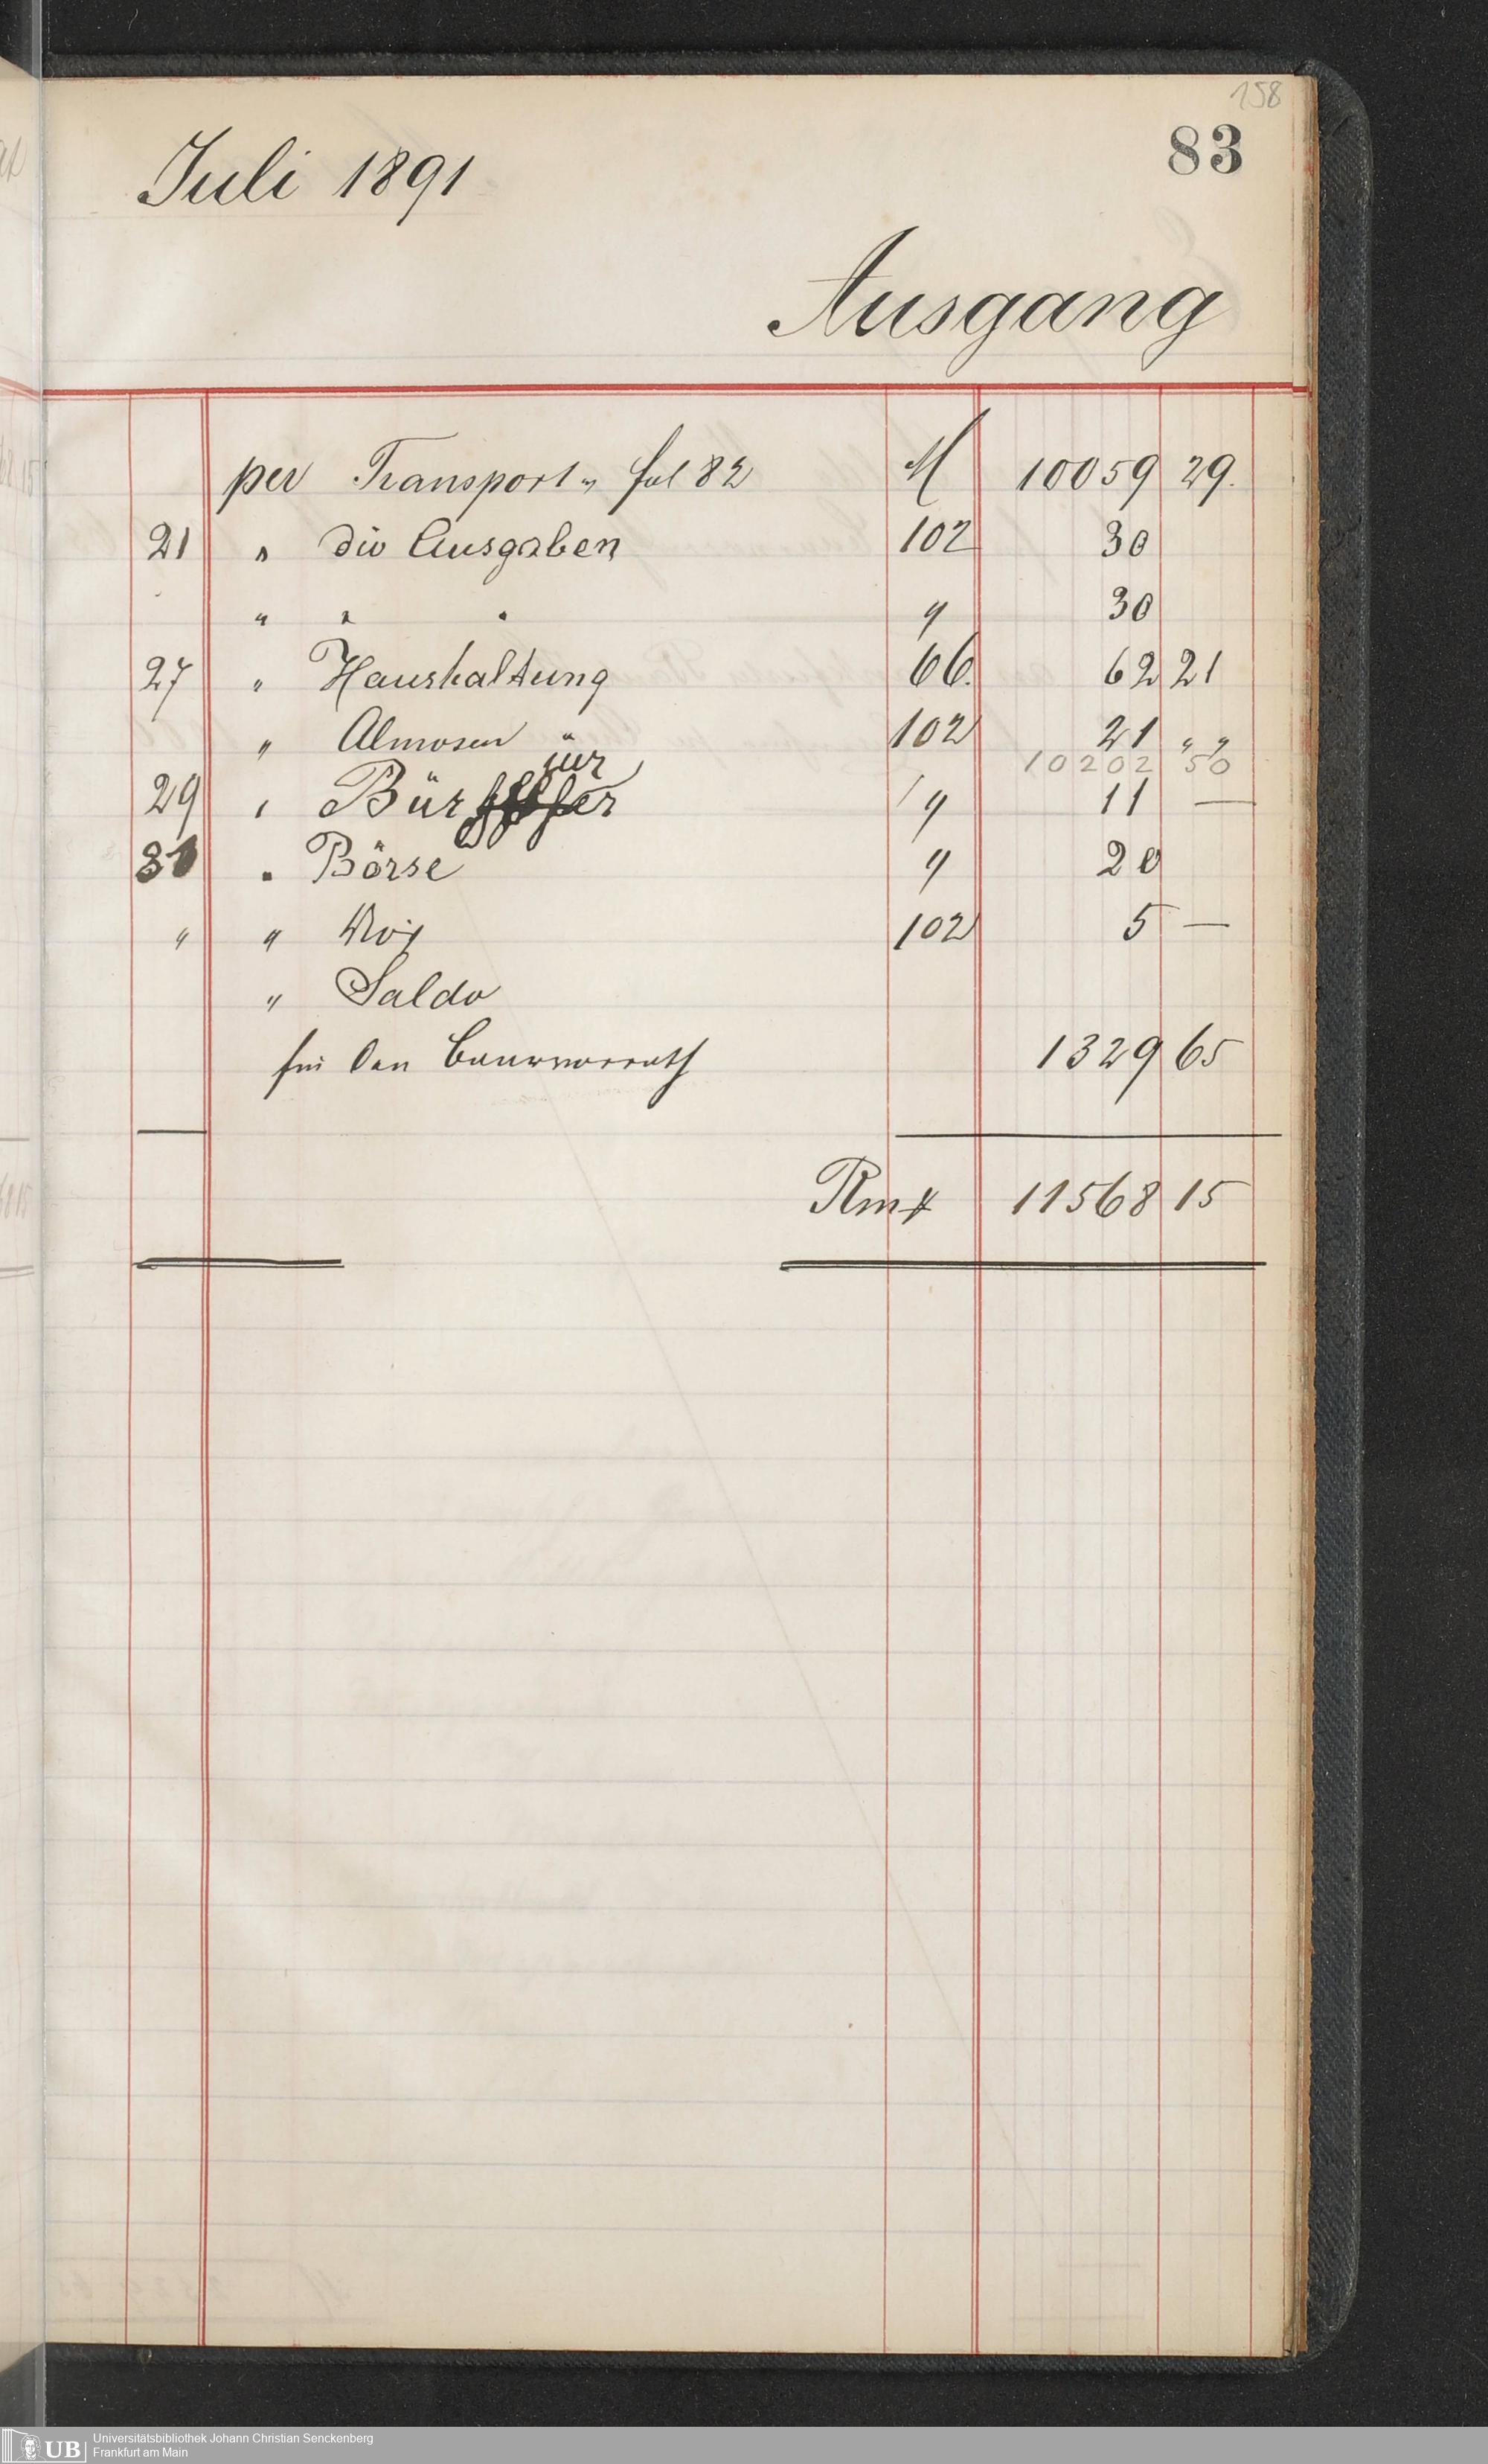 158
83
Juli 1891
Ausgang
per Transport " fol 82 M 10059 29.
21 " div Ausgaben 102 30
" " " " 30
27 " Haushaltung 66. 62 21
" Almosen 102 21 " "
10202 50
29 " Bür " 11 —
31 " Börse " 20
" " 102 5 —
" Saldo
für den Baarvorrath 1329 65
Rm 11568 15
UB Universitätsbibliothek Johann Christian Senckenberg
Frankfurt am Main